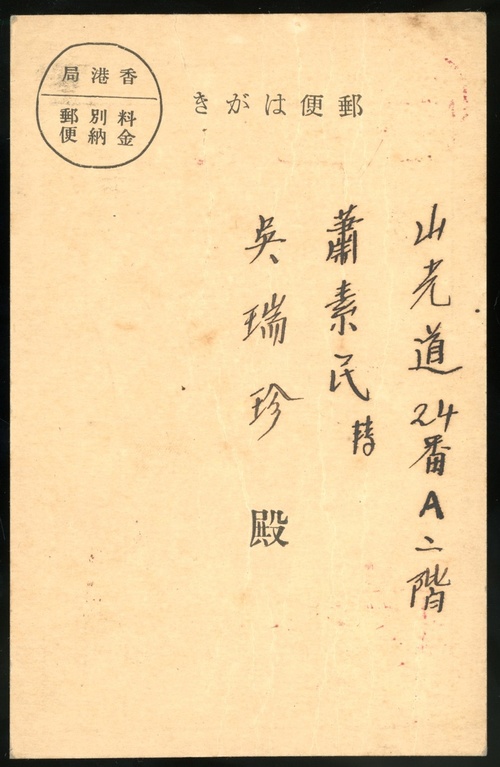 香港局
料金
別納
郵便
郵便はがき
山光道24番A二階
蕭素民
吳瑞珍殿